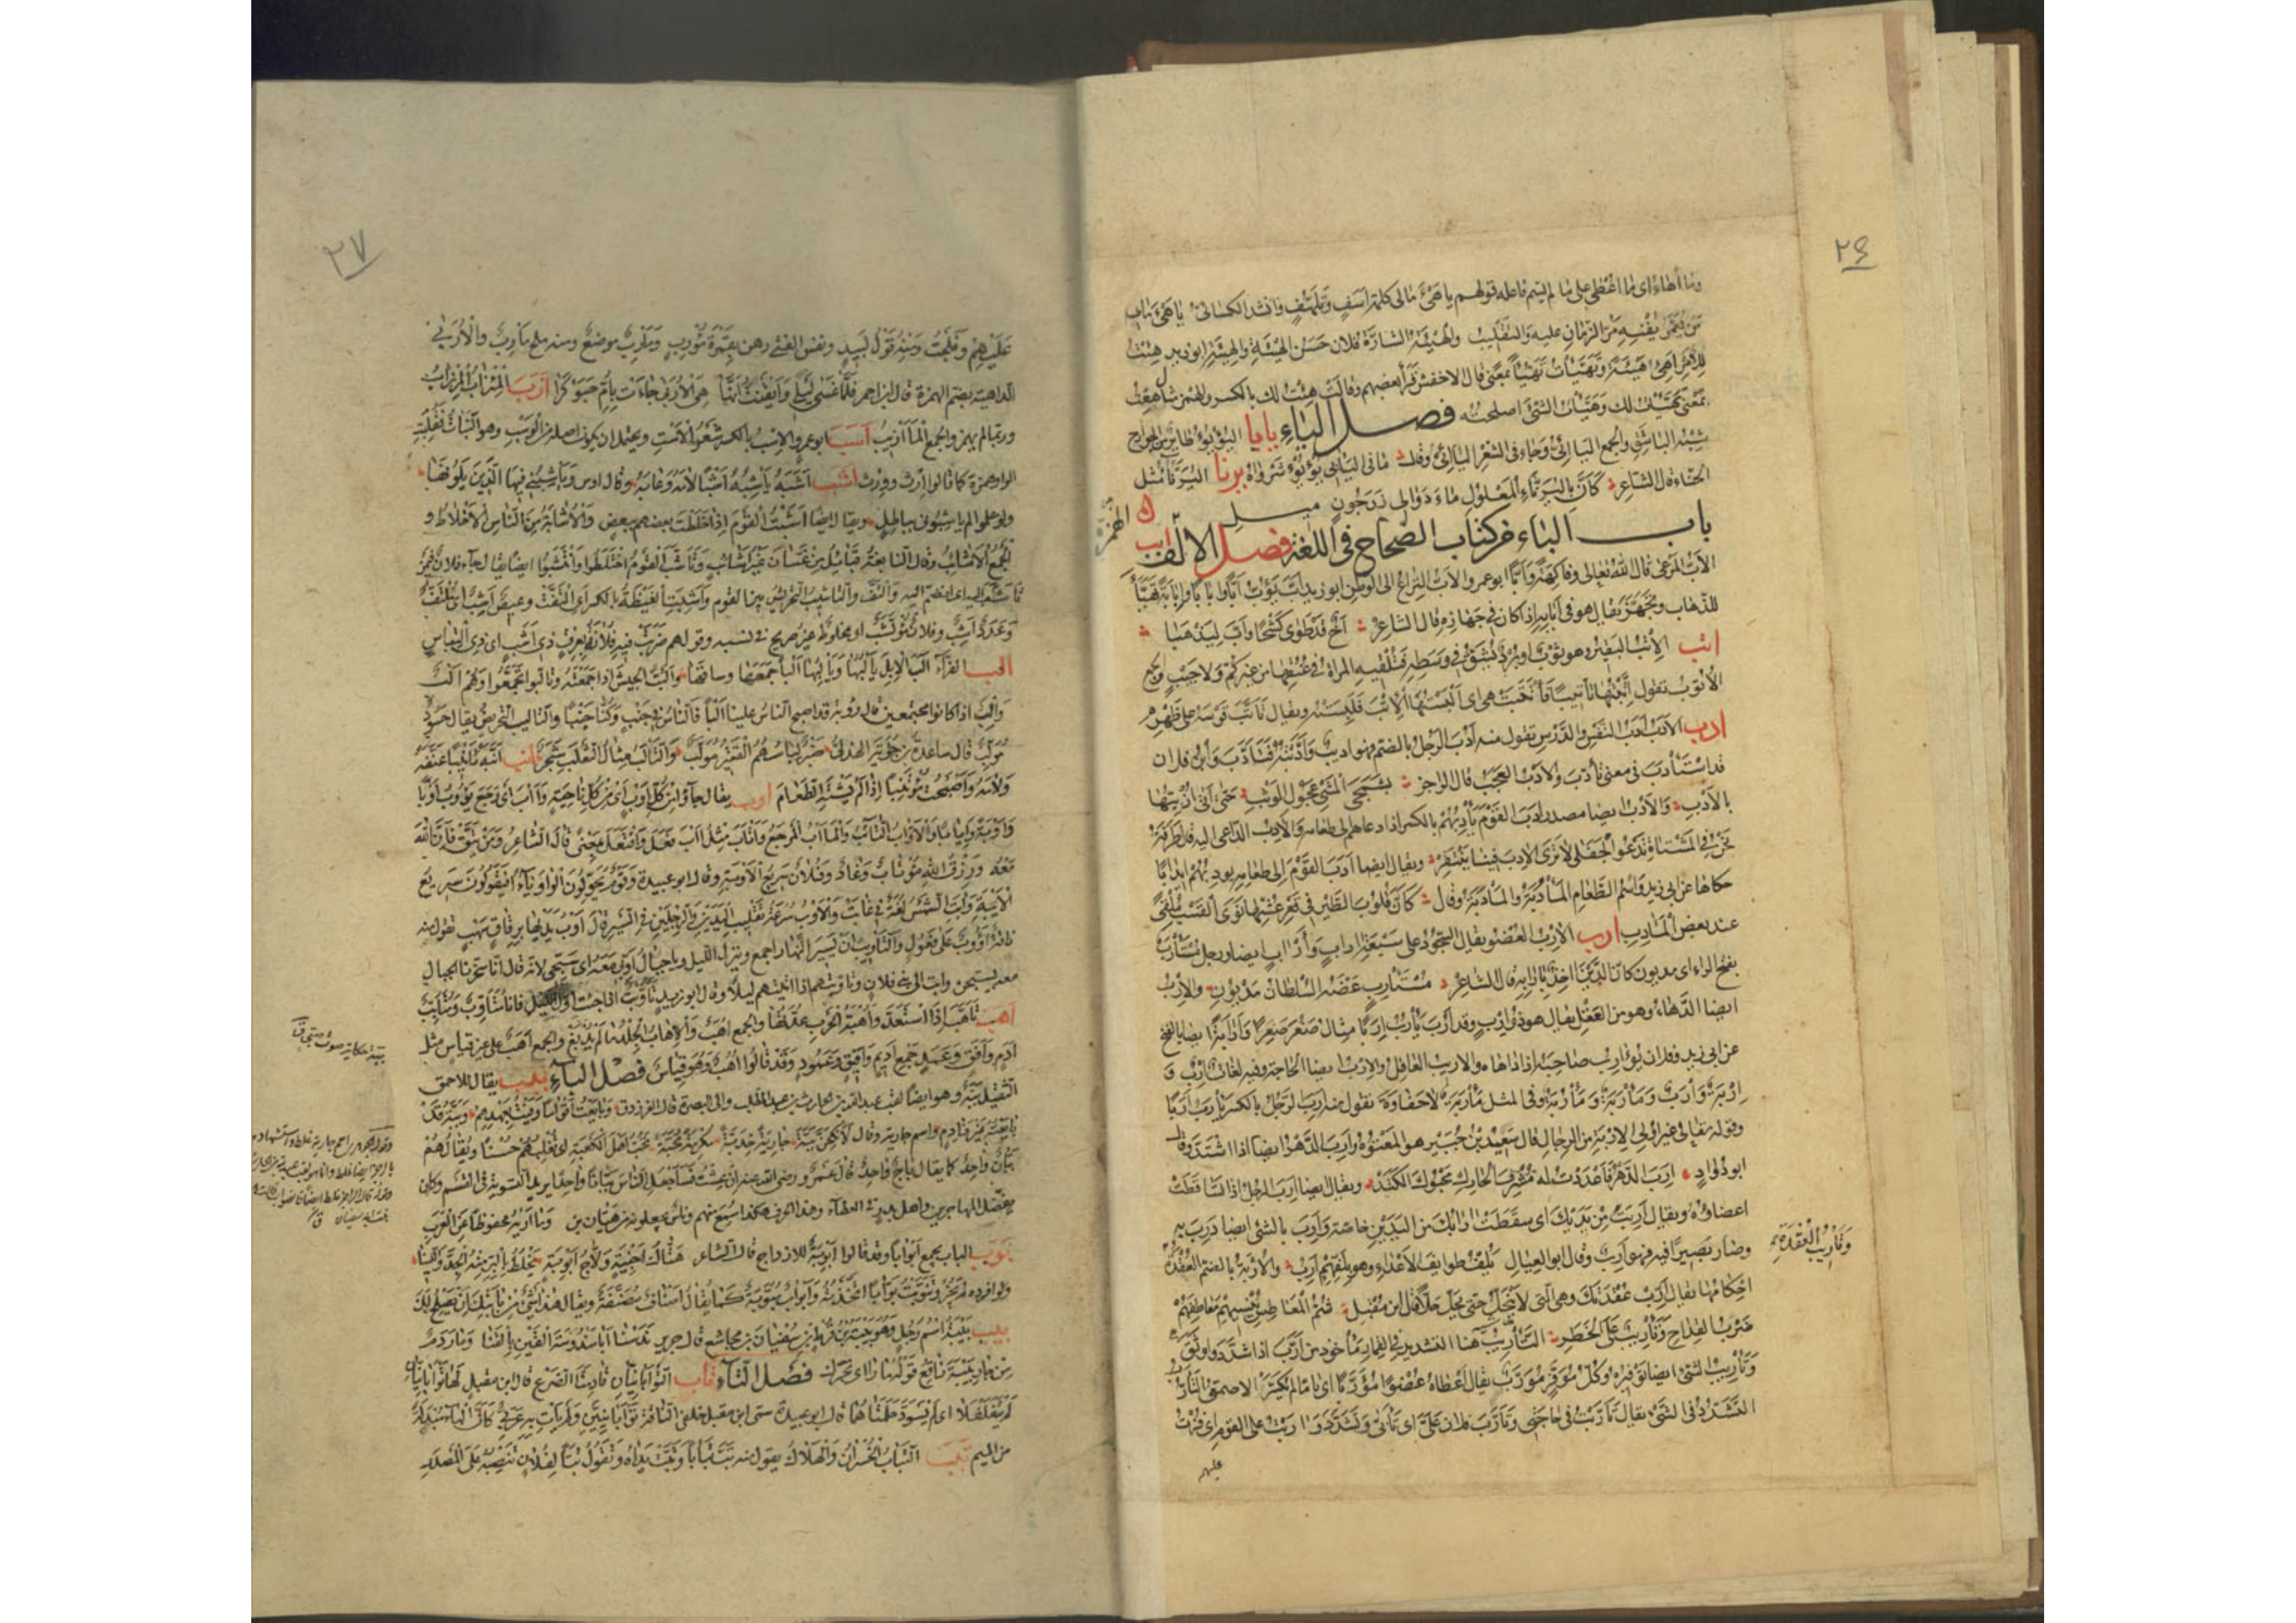 ٢٦
وما أهاءُ اى ما اُعْطى على ما لم يسم فاعله قولهم يا هَىْءَ مالى كلمة اَسَفٍ وتَلَهُّفٍ وانشد الكسائى يا هَىْءَ مالى
مَن يُعَمَّر يُفْنِهِ مَرّ الزمان عليه والتقليب والهَيْئَة الشارَة فلان حَسَن الهَيْئَةِ والهِيئَةِ ابوزيد هِئتُ
للأمر اَهِئُ هَيْئَةً وتَهَيَّأتُ تَهَيُّأً بمعنًى قال الاخفش قرأ بعضهم وقالت هِئْتُ لك بالكسر والهمز مثل هِعْتُ
بمعنى تَهَيَّأتُ لك وهَيَّأتُ الشئ اصلحته فصل الباء بابا اليؤيؤ طاير من الجوارح
شِبْه الباشق والجمع اليَآئِئُ وجاء فى الشعر اليآئى وقال ما فى اليآئى يُؤْيُؤٌ شَرْواهُ يرنا اليُرَنَّأ مثل
الحنّاء قال الشاعر كأنّ باليُرَنَّاءِ المعلول ماءَ دَوالى زَرَجُونٍ ميل
باب الباء من كتاب الصحاح فى اللغة فصل الالف
ابب الهمزة
الأبّ المرعى قال الله تعالى وفاكهةً وأبّا ابو عمرو الأبّ النزاع الى الوطن ابوزيد اَبَّ يَؤُبُّ اَبّا واَبابا واَبابَةً تهيّأ
للذهاب وتجهّز يقال هو فى اَبابِه اذا كان فى جَهازه قال الشاعر اَخٌ قد طوى كَشْحًا وأبّ ليذهبا
اتب الإتْبُ البَقيرة وهو ثوب او بُرْد يُشَقّ فى وسطه فتلقيه المرأة فى عُنُقها من غير كُمّ ولا جيب والجمع
الأتوب تقول اَتَّبْتُها تأتيبًا فأتَّبَت هى اى اَلْبَسْتُها الإتْبَ فلَبِسَتْه ويقال تأتَّب قوسه على ظهره
ادب الأدَبُ اَدَبُ النفس والدَّرْس تقول منه اَدُبَ الرجل بالضم فهو اديب واَدَّبْتُه فتأدَّب وابن فلان
قد استأدب فى معنى تأدّب والأدْب العَجَب قال الراجز بشَمَجى المشى عَجول الوثب حتى اتى اُزْبِيُّها
بالأدْب والأدْب ايضا مصدر اَدَبَ القومَ يأدِبهم بالكسر اذا دعاهم الى طعامه والآدب الداعى اليه قال طرفة
نحن فى المشتاة ندعو الجَفَلى لا ترى الآدب فينا ينتقر ويقال ايضا آدب القوم الى طعامه يودبهم ايدابا
حكاها عن ابى زيد واسم الطعام المأدُبة والمأدَبة وقال كأنّ قلوب الطير فى قعر عُشّها نوى القسب مُلْقًى
عند بعض المآدب ارب الإرْب العضو يقال السجود على سبعة آراب وأرآب ايضا ورجل مستأرب
بفتح الراء اى مديون كأنّ الدَّين اخذ بآرابه قال الشاعر مستأرب عَضَّه السلطان مديون والإرْب
ايضا الدهاء وهو من العقل يقال هو ذو اِرْب وقد اَرُبَ يأرُب اِرَبا مثال صَغُر صِغَرا واَرابة ايضا بالفتح
عن ابى زيد وفلان يؤارب صاحبه اذا داهاه والاريب العاقل والإرْب ايضا الحاجة وفيه لغات اِرْب و
اِرْبة واَرَب ومأرُبة ومأرَبة وفى المثل مأرُبة لا حفاوة تقول منه اَرِب الرجل بالكسر يأرَب اَرَبا
وقوله تعالى غير اولى الاربة من الرجال قال سعيد بن جبير هو المعتوه واَرِب الدهر ايضا اذا اشتدّ وقال
ابو دُواد اَرِب الدهر فأعددت له مُشْرِف الحارك محبوك الكَتَد ويقال ايضا اَرِب الرجل اذا تساقطت
اعضاؤه ويقال اَرِبْتَ من يديك اى سقطت آرابك من اليدين خاصة واَرِب بالشئ ايضا دَرِب به
وصار بصيرا فيه فهو اَرِب وقال ابو العيال يلُفّ طوائف الأعداء وهو بلفّهم اَرِب والأُرْبة بالضم العُقْدة
وتأريب العقدة
احكامها يقال اَرِّب عُقْدتك وهى التى لا تنحلّ حتى تُحَلّ حَلًّا قال ابن مقبل شُمّ العرانين ينسيهم معاطفهم
ضرب القداح وتأريب على الخطر التأريب هنا التشديد فى القمار مأخوذ من اَرَّب اذا شدّد واوثق
وتأريب الشئ ايضا توفيره وكل موفّر مؤرَّب يقال اعطاه عضوا مؤرَّبا اى تاما لم يكسّر الاصمعى التأرّب
التشدّد فى الشئ يقال تأرّبت فى حاجتى وتأرّب فلان علىّ اى تأبّى وتشدّد وآربت على القوم اى فزت
عليهم
٢٧
عليهم وفلجت ومنه قول لبيد ونفس الفتى رهن بقَمْرة مُؤْرِب ومأرب موضع ومنه ملح مأرب والأُرَبى
الداهية بضم الهمزة قال ابن احمر فلمّا غسى ليلى وايقنت انها هى الأُرَبى جاءت بأُمّ حَبَوْكرا ازب المئزاب المزراب
وربما لم يهمز والجمع المآزيب اسب ابو عمرو الإسْب بالكسر شعر الأست ويحتمل ان يكون اصله من الوسب وهو النبات فقلبت
الواو همزة كما قالوا اِرْث ووِرْث اشب اَشَبَه يأشِبُه اَشْبا لامه وعابه وقال ابو ذؤيب ويأشبنى فيها الذين يلونها
ولو علموا لم يأشبونى بباطل ويقال ايضا اَشَبْتُ القوم اذا خلطت بعضهم ببعض والأُشابة من الناس الأخلاط و
الجمع الأشائب وقال النابغة قبائل من غسان غير اشائب وتأشّب القوم اختلطوا وائتشبوا ايضا يقال جاء فلان فيمن
تأشّب اليه اى انضم اليه والتفّ والتأشيب التحريش بين القوم واَشِبت الغيضة بالكسر اى التفّت وعيص اَشِب اى ملتفّ
وعدد اَشِب وفلان مؤتشب اى مخلوط غير صريح فى نسبه وقولهم ضربت فيه فلانة بعرق ذى اَشَب اى ذى التباس
الب الفرّاء اَلَبَ الإبل يألِبها ويألُبها اَلْبا جمعها وساقها واَلَبت الجيش اذا جمعته وتألّبوا تجمّعوا وهم اَلْب
واِلْب اذا كانوا مجتمعين قال رؤبة قد اصبح الناس علينا اَلْبا فالناس فى جنب وكنا جنبا والتأليب التحريض يقال حسود
مؤلّب قال ساعدة بن جؤية الهذلى ضَبْر لباسهم القتير مؤلَّب والتألب مثال الثعلب شجر انب اَنَّبه تأنيبا عنّفه
ولامه واصبحت مؤتنبا اذا لم تشته الطعام اوب يقال جاؤا من كل اوب اى من كل ناحية وآب اى رجع يؤوب اوبا
واوبة وايابا والأوّاب التائب والمآب المرجع وائتاب مثل آب فعل وافتعل بمعنى قال الشاعر ومن يتّق فإنّ الله
معه ورزق الله مؤتاب وغاد وفلان سريع الأوبة وقال ابو عبيدة وقوم يحوّلون الواو ياء فيقولون سريع
الأيبة وآبت الشمس لغة فى غابت والأوب سرعة تقليب اليدين والرجلين فى السير قال اوب يديها برقاق سهب تقول منه
ناقة اَؤُوب على فعول والتأويب ان يسير النهار اجمع وينزل الليل ويا جبال اوّبى معه اى سبّحى لأنه قال انا سخّرنا الجبال
معه يسبّحن وأبت الى بنى فلان وتأوّبتهم اذا اتيتهم ليلا وقال ابو زيد تأوّبت اذا جئت اول الليل فأنا متأوّب ومتأيّب
اهب تأهّب اذا استعدّ واُهْبة الحرب عُدّتها والجمع اُهَب والإهاب الجلد ما لم يدبغ والجمع اَهَب على غير قياس مثل
اَدَم واَفَق وعَمَد جمع اديم وافيق وعمود وقد قالوا اُهُب وهو قياس فصل الباء ببب يقال للاحمق
الثقيل ببّة وهو ايضا لقب عبد الله بن الحارث بن عبد المطلب والى البصرة قال الفرزدق وبايعت اقواما وفيت بعهدهم وببّة قد
بايعته غير نادم واسم جارية وقال لأنكحنّ ببّة جارية خدبّة مكرمة محبّة تحبّ اهل الكعبة اى تغلبهم حسنا ويقال هم
ببّان واحد كما يقال بأج واحد قال عمر رضى الله عنه ان عشت فسأجعل الناس ببّانا واحدا يريد التسوية فى القسم وكان
يفضّل المهاجرين واهل بدر فى العطاء وهذا الحرف هكذا سمع منهم وناس يجعلونه من هيّان بن بيّان وما اراه محفوظا عن العرب
بوب الباب يجمع ابوابا وقد قالوا ابوبة للازدواج قال الشاعر هتّاك اخبية ولّاج ابوبة يخلط بالبرّ منه الجدّ واللينا
ولو افرده لم يجز وتبوّبت بوّابا اتخذته وابواب مبوّبة كما يقال اصناف مصنّفة ويقال هذا شئ من بابتك اى يصلح لك
بيب بيبة اسم رجل وهو بيبة بن قرط بن سفيان بن مجاشع قال جرير ندسنا ابا مندوسة القين بالقنا ومار دم
من جار بيبة ناقع قوله مار اى تحرّك فصل التاء تأب
من الميم تبب التباب الخسران والهلاك يقول منه تبّ تبابا وتبّت يداه وتقول تبّا لفلان تنصبه على المصدر